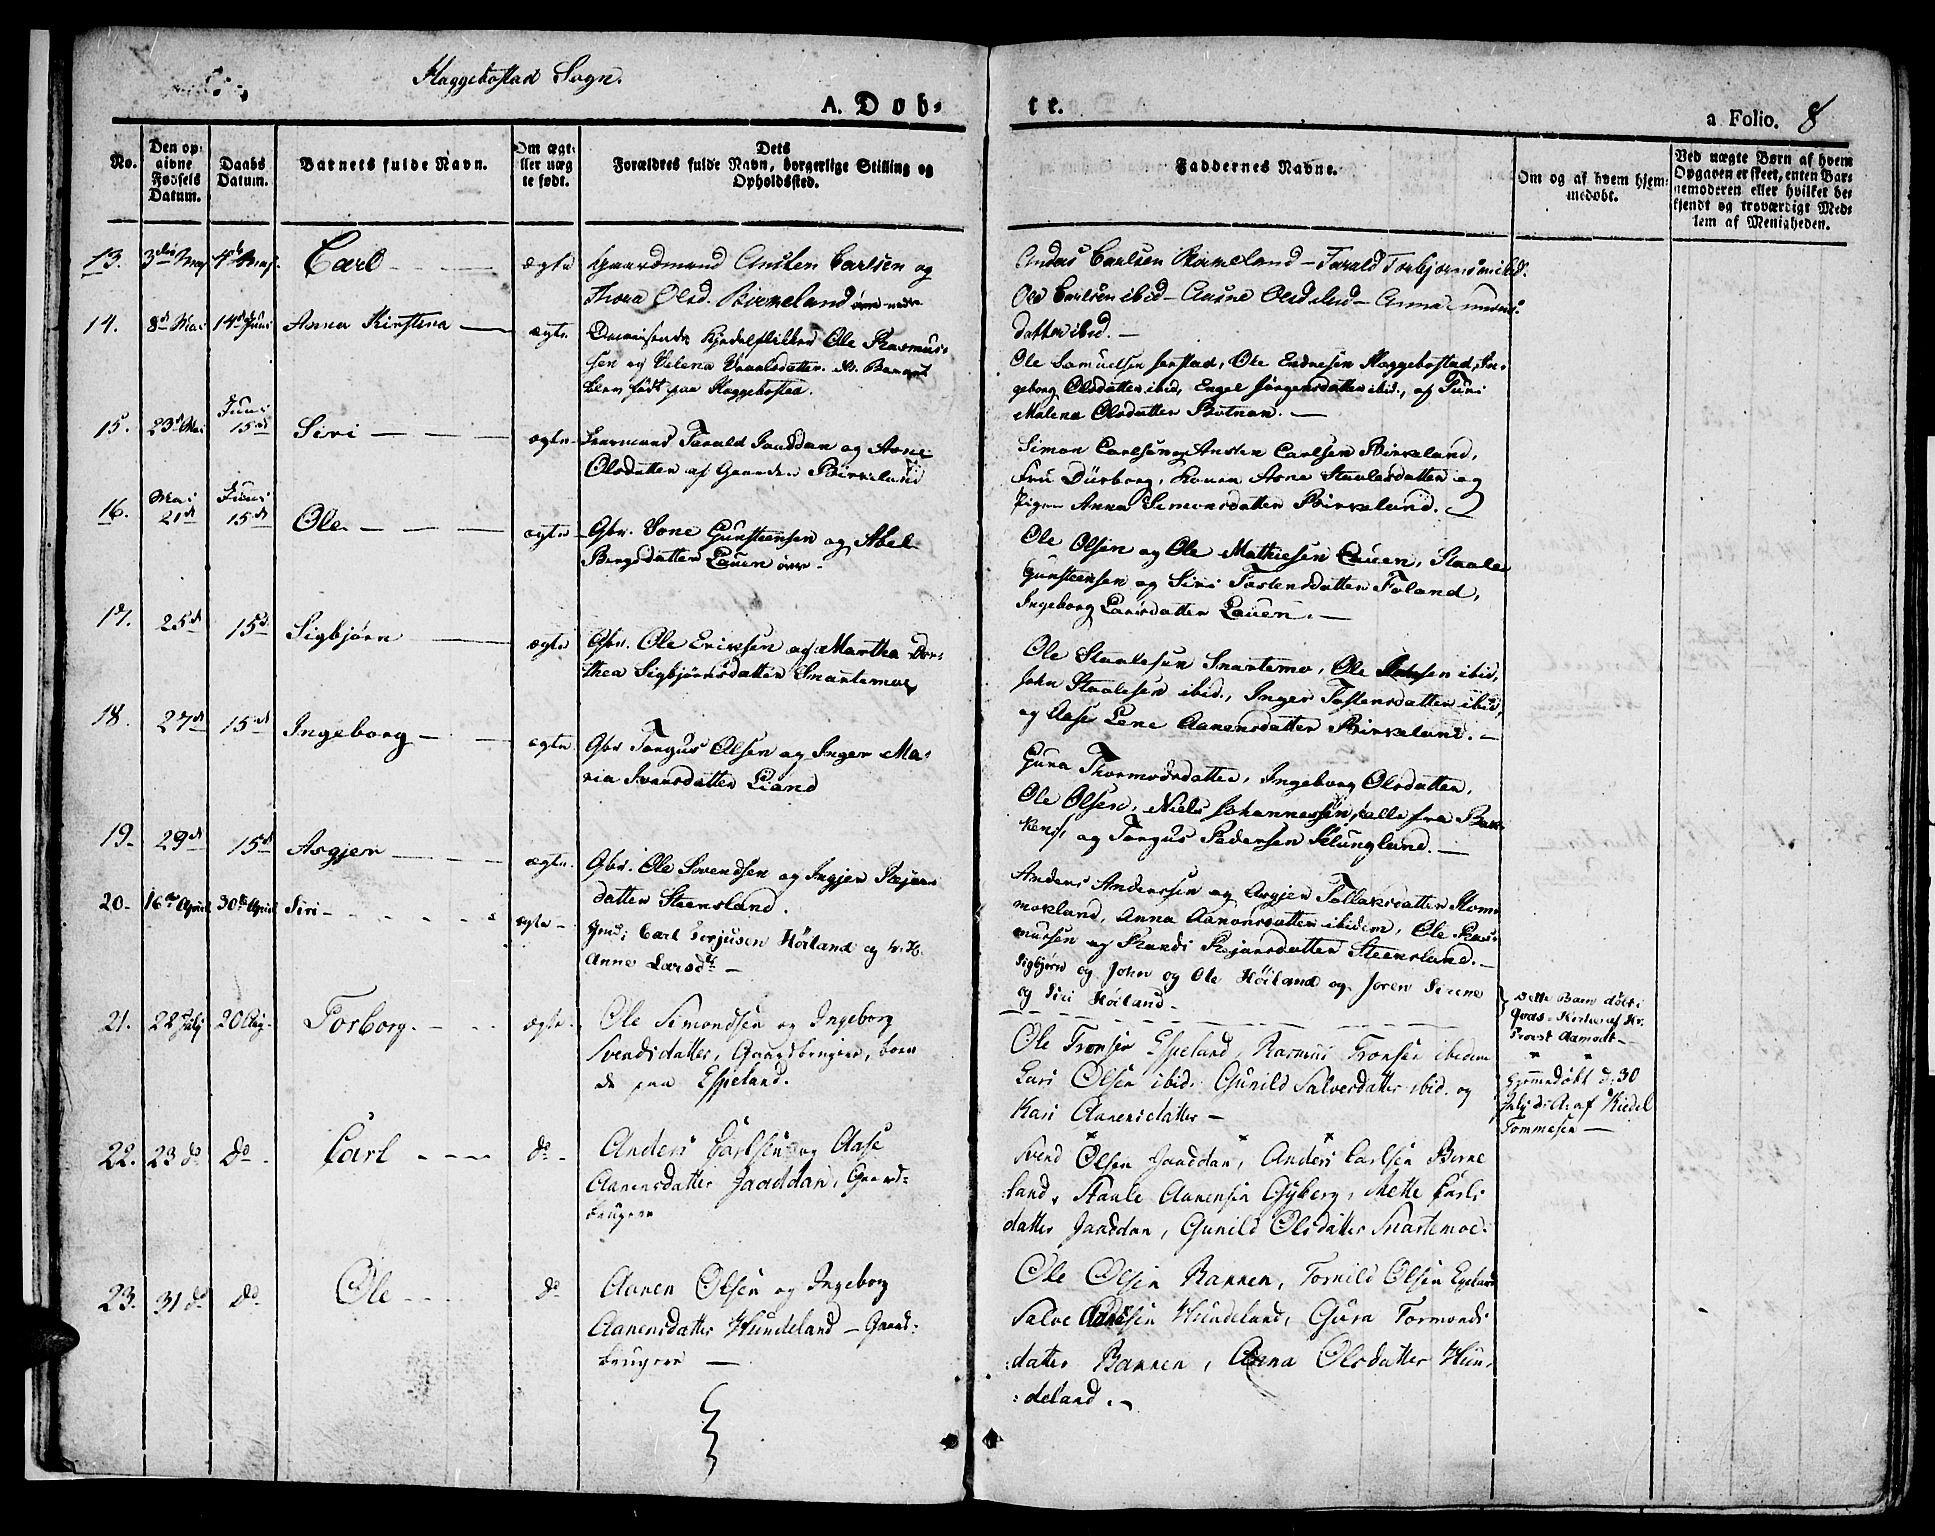 Haggebostad Sogn.
A. Döb-
te.
a Folio. 8
No.
Den op-
givne
Födsels
Datum.
Daabs
Datum.
Barnets fulde Navn.
Om ægt-
eller uæg
te födt.
Dets
Forældres fulde Navn, borgerlige Stilling og
Opholdssted.
Faddernes Navne.
Om og af hvem hjem-
medöbt.
Ved uægte Børn af hvem
Opgaven er skeet, enten Bar-
nemoderen eller hvilket be-
kjendt og troværdigt Med-
lem af Menigheden.
13. Carl ægte Gaardmand Austen Carlsen og
Thora Olsd. Birkeland
Anders Carlsen Birkeland - Tarald Torbjornsen ibid.
Ole Carlsen ibid - Aasne Olsd ibid - Anna
datter ibid. -
14. 8d Mai 14d Juni Anna Kirstina ægte Ole Rasmus-
sen og Helena
barn födt paa Haggebostad.
Ole Samuelsen Ole Endresen Haggebostad, In-
geborg Olsdatter ibid, Engel Jörgensdatter ibid., og Turi
Malena Olsdatter Botnan. -
15. 23d Mai Juni 15d Siri ægte Tarald Jaaddan og Asne
Olsdatter af Gaarden Birkeland
Simon Carlsen og Austen Carlsen Birkeland,
Fru Düsborg, Konen Asne Staalesdatter og
Pigen Anna Simonsdatter Birkeland.
16. Mai 21d Juni 15d Ole ægte Gbr. Sone Gunsteensen og Abel
Bergsdatter Lauen övr.
Ole Olsen og Ole Mathiesen Lauen, Staale
Gunsteensen og Siri Tostensdatter Foland,
Ingeborg Larsdatter Lauen. -
17. 25d 15d Sigbjörn ægte Gbr. Ole Eriksen og Martha Dor-
thea Sigbjörnsdatter Snartemoe
Ole Staalesen Snartemo, Ole ibid,
John Staalesen ibid., Inger Tostensdatter ibid,
og Aase Lene Aanensdatter Birkeland. -
18. 27d 15d Ingeborg ægte Gbr Torgus Olsen og Inger Ma-
ria Ivarsdatter Liand
Gura Thormodsdatter, Ingeborg Olsdatter,
Ole Olsen, Niels Johannessen, alle fra Bak-
ken, og Torgus Pedersen Klungland. -
19. 29d 15d Asgjer ægte Gbr. Ole Svendsen og Ingjer Rejars
datter Steensland.
Anders Anderssen og Asgjer Tollaksdatter Rom-
mokland, Anna Aanonsdatter ibidem, Ole Ras-
mussen og Randi Rejarsdatter Steensland. -
20. 16de April 30te April Siri ægte Gmd: Carl Terjusen Höiland og
Anne Larsd. -
Sigbjörn og John og Ole Höiland og Joren Sirene
og Siri Höiland -
Dette Barn döbt i
Qvas-Kirke af Hr.
Provst Aamodt -
21. 22 July 20 Aug. Torborg ægte Ole Simondsen og Ingeborg
Svendsdatter, Gaardbrugere, boen
de paa Espeland.
Ole Tronsen Espeland, Rasmus Tronsen ibidem
Lars Olsen ibid. Gunild Salvesdatter ibid. og
Kari Aanensdatter -
Hjemmedöbt d. 30
July d: A: af Kiedel
Tommesen -
22. 23 do do. Carl do Anders Carlsen og Aase
Aanensdatter Jaaddan, Gaard-
brugere
Svend Olsen Jaaddan, Anders Carlsen Birke
land, Staale Aanensen Gyberg, Mette Carls
datter Jaaddan, Gunild Olsdatter Snartemoe.
23. 31 do do. Ole do Aanen Olsen og Ingeborg
Aanensdatter Hundeland - Gaard-
brugere -
Ole Olsen Bakken, Tornild Olsen Egeland
Salve Hundeland, Gura Tormonds
datter Bakken, Anna Olsdatter Hun-
deland. -